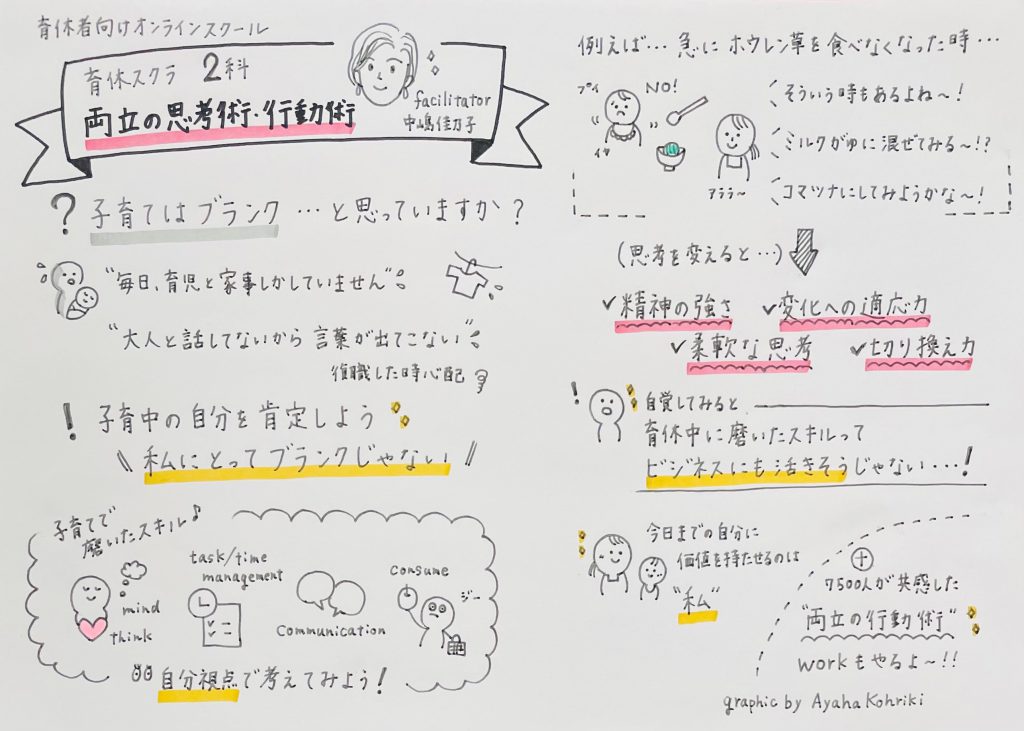 育休者向けオンラインスクール
育休スクラ 2科
両立の思考術・行動術
facilitator
中嶋佳乃子
? 子育てはブランク…と思っていますか?
"毎日、育児と家事しかしていません"
"大人と話してないから 言葉が出てこない"
復職した時心配
! 子育中の自分を肯定しよう
\\ 私にとってブランクじゃない //
子育てで
磨いたスキル♪
mind
think
task/time
management
communication
consume
ジー
自分視点で考えてみよう!
例えば… 急に ホウレン草を食べなくなった時…
プイ
NO!
イヤ
アララ〜
そういう時もあるよね〜!
ミルクがゆに混ぜてみる〜!?
コマツナにしてみようかな〜!
(思考を変えると…)
✓精神の強さ ✓変化への適応力
✓柔軟な思考 ✓切り換え力
! 自覚してみると
育休中に磨いたスキルって
ビジネスにも活きそうじゃない…!
今日までの自分に
価値を持たせるのは
"私"
+
7500人が共感した
"両立の行動術"
workもやるよ〜!!
graphic by Ayaha Kohriki